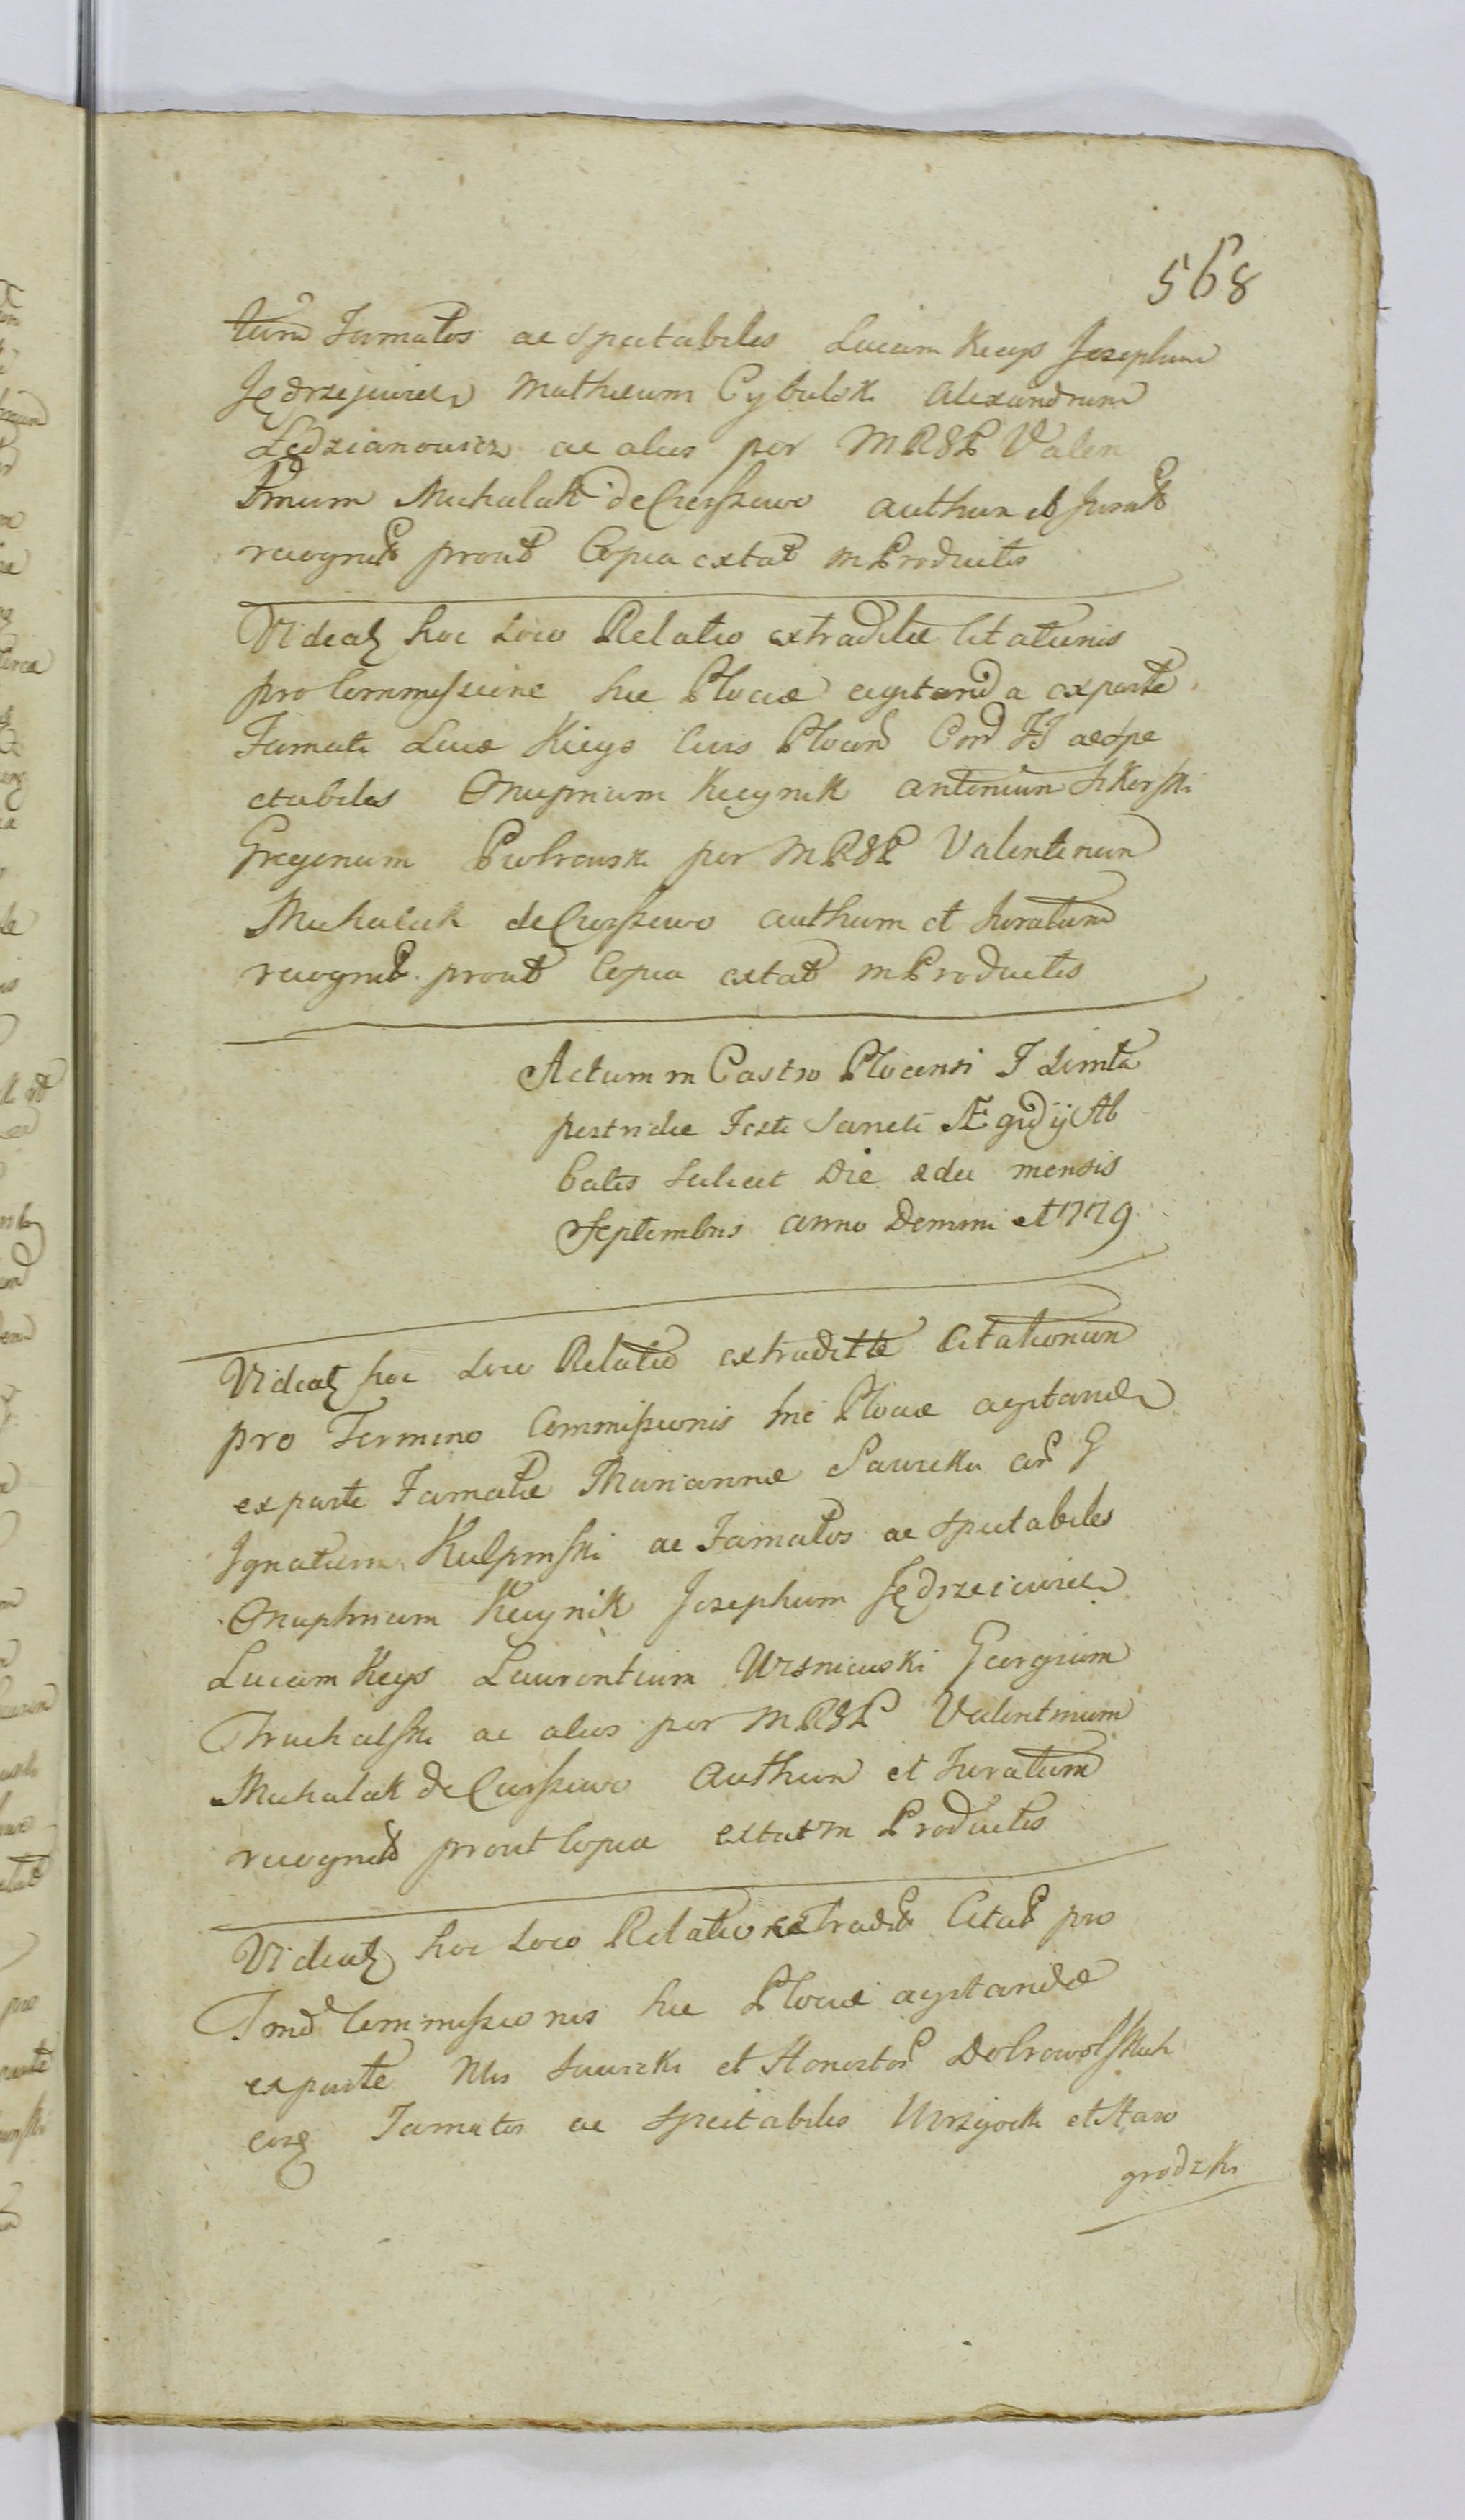 568
tum Famatos ac Spectabiles Lucam Kieys Josephum
Jędrzejewicz Matheum Cybulski Alexandrum
Lędzianowicz ac alios per MRGP Valen
tinum Michalak de Cierszewo authen et Jurat
recognit prout Copia extat in Productis
Videatz hoc Loco Relatio extraditae Citationis
pro Commissione hic Plociae agitanda ex parte
Famati Lucae Kieys Civis Plocen Con FF ac Spe
ctabiles Onuprium Kucynik Antonium Sikorski
Gregorium Piotrowski per MRGP Valentinum
Michalak de Cierszewo authum et Juratum
recognit prout Copia extat in Productis
Actum in Castro Plocensi F
postridie Festi Sancti Ægidij Ab
batis Scilicet Die 2da mensis
Septembris Anno Domini 1779
Videatz hoc Loco Relatio extraditae Citationum
pro Termino Commissionis hic Plociae agitandae
ex parte Famatae Mariannae Sawicka con G
Ignatium Kulpinski ac Famatos ac Spectabiles
Onuphrium Kucynik Josephum Jędrzeiewicz
Lucam Keys Laurentium Wisniewski Georgium
Truchalski ac alios per MRGP Valentinum
Michalak de Cierszewo Authum et Juratum
recognit prout Copia extat in Productis
Videatz hoc Loco Relatio extradit Citat pro
Tmo Commissionis hic Plociae agitandae
ex parte Nlis Sawicki et Honestor Dobrowolskich
conz Famatos ac Spectabiles et Staro
grodzki